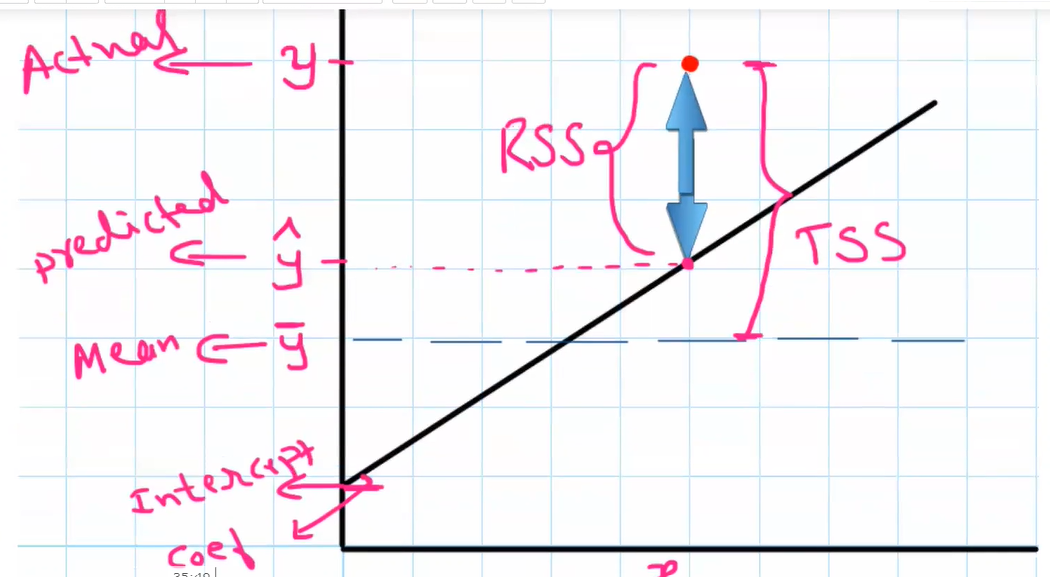 Actual
y
RSS
predicted
ŷ
TSS
Mean
ȳ
Intercept
coef
x